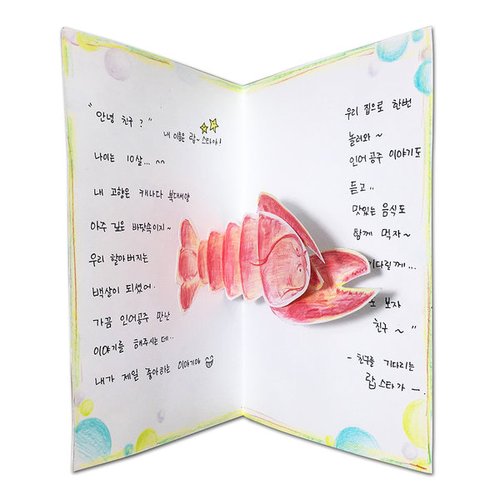 "안녕 친구?"
내 이름은 랍~스타야!
나이는 10살...~
내 고향은 캐나다 북대서양
아주 깊은 바닷속이지~
우리 할아버지는
백살이 되셨어.
가끔 인어공주 만난
이야기를 해주시는데..
내가 제일 좋아하는 이야기야
우리 집으로 한번
놀러와~
인어공주 이야기도
듣고..
맛있는 음식도
함께 먹자~
보자
친구~"
- 친구를 기다리는
랍스타가 -